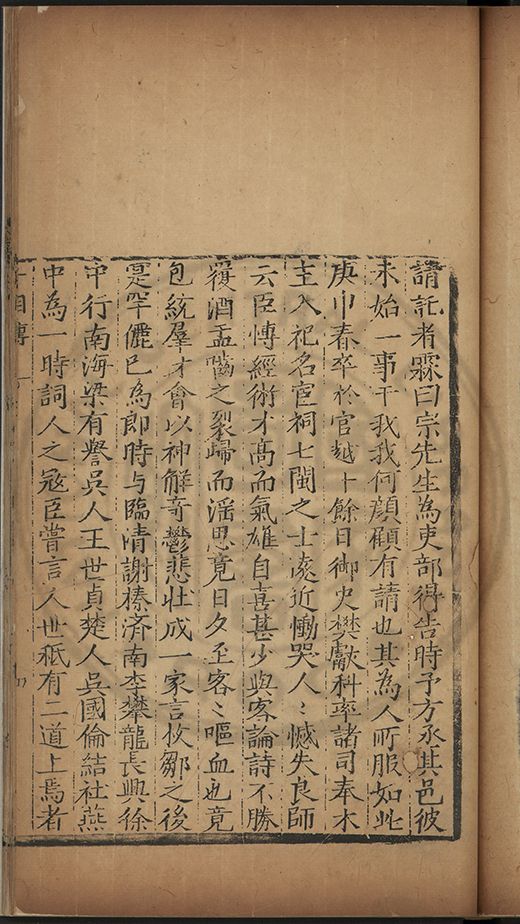 請託者霖曰宗先生為吏部得告時予方丞其邑彼
未始一事干我我何顔顧有請也其為人所服如此
庚申春卒於官越十餘日御史樊獻科率諸司奉木
主入祀名宦祠七閩之士遠近慟哭人〻憾失良師
云臣愽經術才髙而氣雄自喜甚少與客論詩不勝
覆酒盂嚙之裂歸而滛思竟日夕至客〻嘔血也竟
包統羣才會以神解竒鬱悲壯成一家言枚鄒之後
寔罕儷已為郎時与臨清謝榛済南李攀龍長興徐
中行南海梁有譽吳人王世貞楚人吳國倫結社燕
中為一時詞人之冠臣嘗言人世秪有二道上焉者